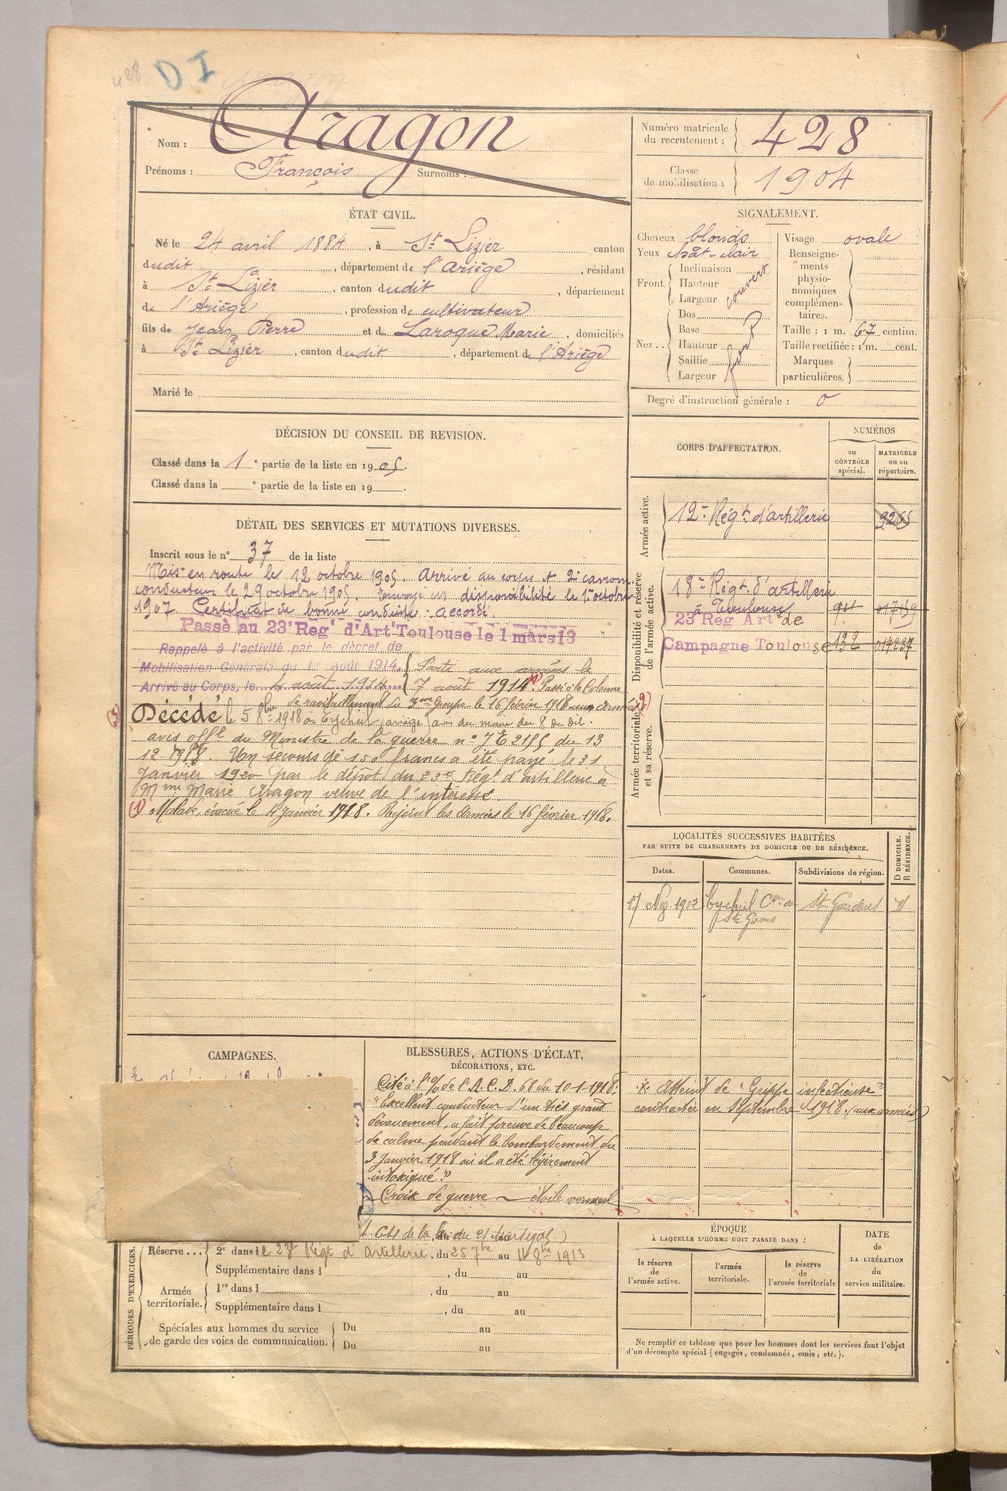 428 DI
Nom : Aragon
Prénoms : François Surnoms :
Numéro matricule du recrutement : 428
Classe de mobilisation : 1904
ÉTAT CIVIL.
Né le 24 avril 1884, à St Lizier canton
dudit, département de l'Ariège, résidant
à St Lizier, canton dudit, département
de l'Ariège, profession de cultivateur
fils de Jean Pierre et de Laroque Marie, domiciliés
à St Lizier, canton dudit, département de l'Ariège
Marié le
SIGNALEMENT.
Cheveux blonds
Yeux chât-clair
Front. Inclinaison
Hauteur
Largeur
couvert
Nez.. Dos
Base
Hauteur
Saillie
Largeur
Visage ovale
Renseignements physionomiques complémentaires.
Taille : 1 m. 67 centim.
Taille rectifiée : 1 m. cent.
Marques particulières.
Degré d'instruction générale : 0
DÉCISION DU CONSEIL DE REVISION.
Classé dans la 1e partie de la liste en 1905.
Classé dans la e partie de la liste en 19
DÉTAIL DES SERVICES ET MUTATIONS DIVERSES.
Inscrit sous le n° 37 de la liste
Mis en route le 12 octobre 1905. Arrivé au corps et 2e canon.
conducteur le 29 octobre 1905. Envoyé en disponibilité le 1er octobre
1907. Certificat de bonne conduite : accordé.
Passé au 23e Rég' d'Art' Toulouse le 1 mars 13
Rappelé à l'activité par le décret de
Mobilisation Générale du 1er août 1914
Arrivé au Corps, le 4 août 1914
Parti aux armées le
7 août 1914 Passé à la Colonne
de ravitaillement du 3me groupe le 16 février 1918 aux armées
Décédé le 5 8bre 1918 à Eycheil (ariège) avis du maire du 8 du dit.
avis offel du Ministre de la guerre n° du 13
12 1918. Un secours de 150 francs a été payé le 31
Janvier 1920 par le dépôt du 23e Régt d'artillerie à
Mme Marie Aragon veuve de l'intéressé
(1) Malade, évacué le 4 Janvier 1918. Rejoint les Armées le 16 février 1918.
CORPS D'AFFECTATION.
NUMÉROS
au CONTRÔLE spécial.
MATRICULE ou au répertoire.
Armée active.
12e Régt d'artillerie
Disponibilité et réserve de l'armée active.
18e Régt d'artillerie
à Toulouse
23 Rég Art de
Campagne Toulouse 132
Armée territoriale et sa réserve.
LOCALITÉS SUCCESSIVES HABITÉES
PAR SUITE DE CHANGEMENTS DE DOMICILE OU DE RÉSIDENCE.
D DOMICILE. R RÉSIDENCE.
Dates. Communes. Subdivisions de région.
Eycheil Con de St Girons St Gaudens
CAMPAGNES.
BLESSURES, ACTIONS D'ÉCLAT,
DÉCORATIONS, ETC.
Cité à l'o/ de l'A.C.D. 68 du 10-1-1918:
"Excellent conducteur d'un très grand
dévouement, a fait preuve de beaucoup
de calme pendant le bombardement du
3 Janvier 1918 où il a été légèrement
intoxiqué."
Croix de guerre — étoile vermeil
* Atteint de "Grippe infectieuse"
contractée en Septembre 1918. (aux armées)
PÉRIODES D'EXERCICES.
Réserve... 2e dans le 23e Régt d'artillerie, du 25 7bre au 11 8bre 1913
Supplémentaire dans l , du au
Armée territoriale. 1re dans l , du au
Supplémentaire dans l , du au
Spéciales aux hommes du service Du au
de garde des voies de communication. Du au
ÉPOQUE
À LAQUELLE L'HOMME DOIT PASSER DANS :
la réserve de l'armée active.
l'armée territoriale.
la réserve de l'armée territoriale
DATE de LA LIBÉRATION du service militaire.
Ne remplir ce tableau que pour les hommes dont les services font l'objet
d'un décompte spécial (engagés, condamnés, omis, etc.).